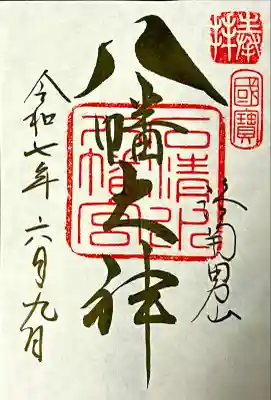 奉拝
國寶
洛南男山
八幡大神
石清水八幡宮
令和七年六月九日